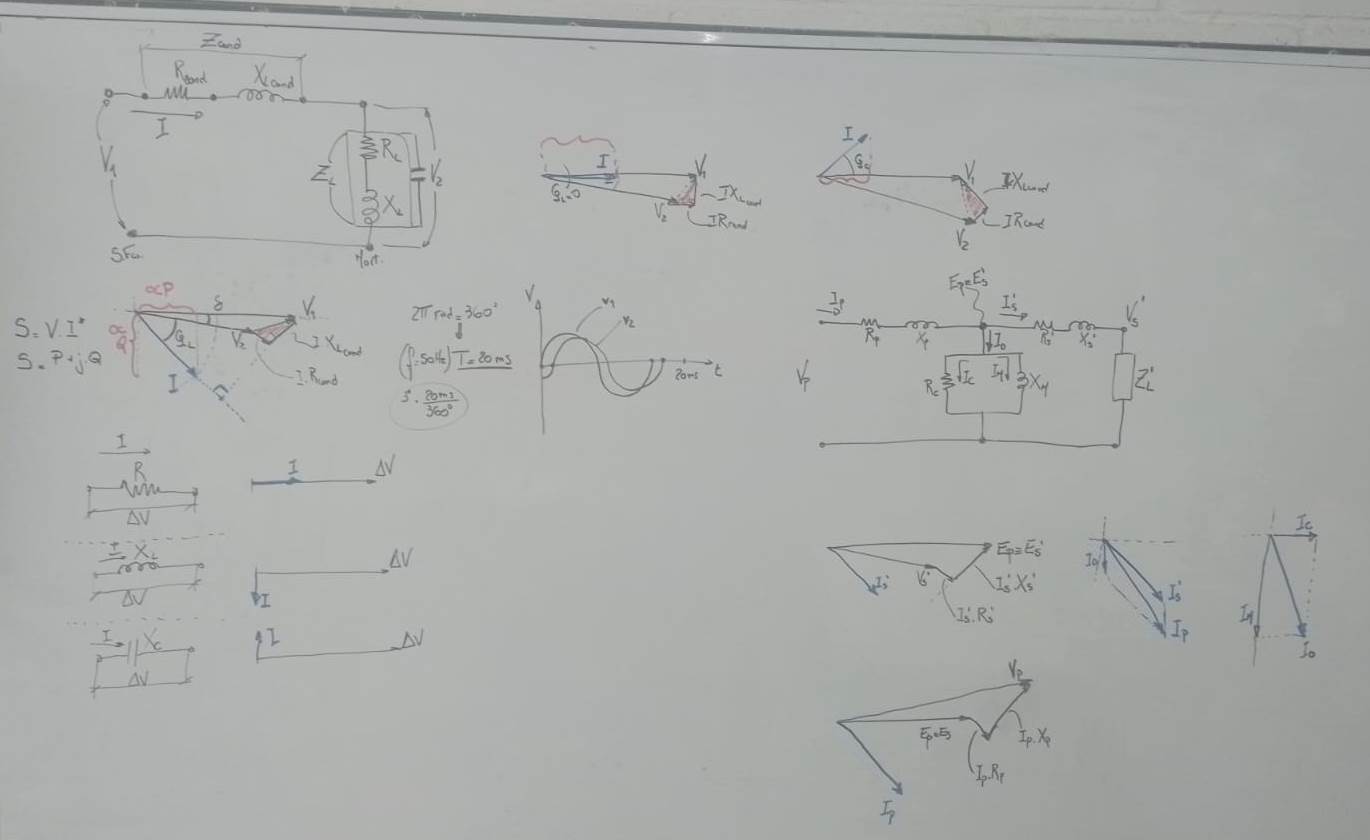 Zcond
Rcond XLcond
I
V1
ZL
RL
XL
V2
S.Fu.
I
V1
φL=0
V2
IXLcond
IRcond
I
φL
V1
IXLcond
IRcond
V2
S=V.I*
S=P+jQ
αP
αQ
δ
V1
φL
V2
I XLcond
I
I.Rcond
2π rad=360°
(f=50Hz) T=20ms
3°. 20ms/360°
V
v1
v2
20ms
t
Ip
Ep=Es'
Is'
Rp
Xp
Rs'
Xs'
Vs'
Io
Vp
Rc
Ic
IM
XM
ZL'
I
R
ΔV
I
ΔV
I
XL
ΔV
ΔV
I
I
Xc
ΔV
I
ΔV
Ep≡Es'
Is'
Vs'
Is'.Xs'
Is'.Rs'
Io
Is'
Ip
Ic
IM
Io
Vp
Ep=Es
Ip.Xp
Ip.Rp
Ip